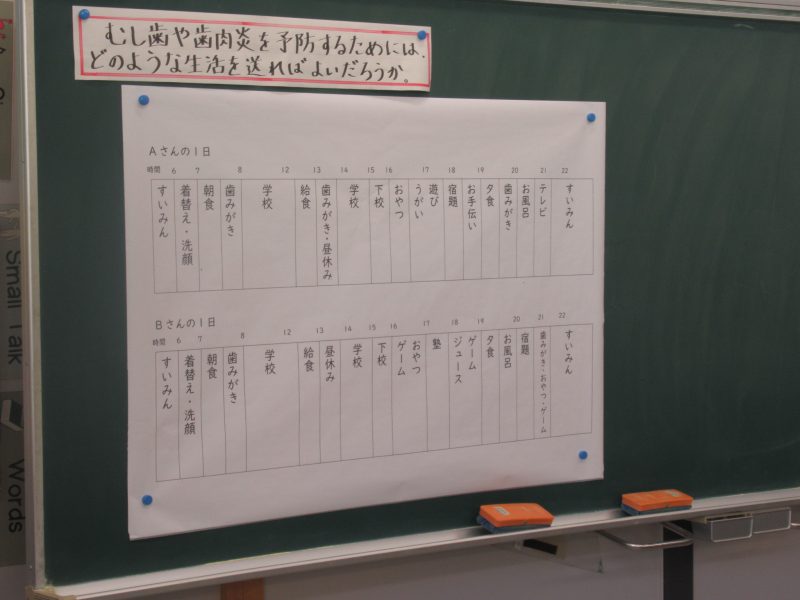 むし歯や歯肉炎を予防するためには、
どのような生活を送ればよいだろうか。
Aさんの1日
時間 6 7 8 12 13 14 15 16 17 18 19 20 21 22
すいみん
着替え・洗顔
朝食
歯みがき
学校
給食
歯みがき・昼休み
学校
下校
おやつ
うがい
遊び
宿題
お手伝い
夕食
歯みがき
お風呂
テレビ
すいみん
Bさんの1日
時間 6 7 8 12 13 14 15 16 17 18 19 20 21 22
すいみん
着替え・洗顔
朝食
歯みがき
学校
給食
昼休み
学校
下校
ゲーム
おやつ
塾
ジュース
ゲーム
夕食
お風呂
宿題
歯みがき・おやつ・ゲーム
すいみん
Small Talk
Words